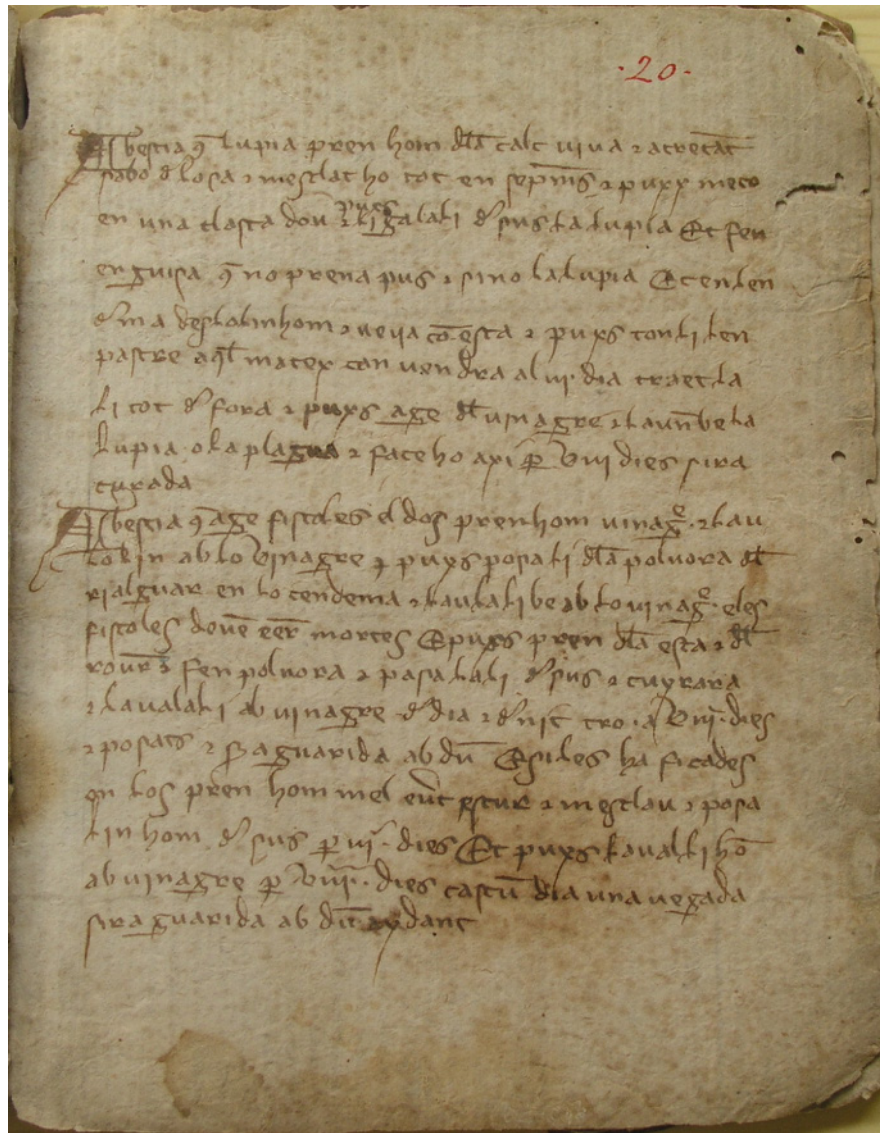 ·20·
A bestia q̄ lupia pren hom dl̄a calc viva ⁊ atretāt
sabo d losa ⁊ mesclat ho tot en sepms ⁊ puxs meto
en una closca dou pues ligalali d sus la lupia Et fen
en guisa q̄ no prena pus ⁊ sino la lupia Et enlen
dma desloli hom ⁊ veija cō esta ⁊ puxs tonlilen
pastre aql̄ matex can vendra al vi· dia traetla
li tot d fora ⁊ puxs age dl̄ vinagre ⁊ launbe la
lupia o la plagua ⁊ faceho axi p̄ viii dies sira
curada
A bestia q̄ age fistoles el dos pren hom vinagre· ⁊ lau
lokin ab lo vinagre ⁊ puxs posali dl̄a polvora dl̄
rialguar en lo cendema ⁊ lavalali be ab lo vinagr̄· eles
fistoles devē eēr mortes E puxs pren dl̄a esca ⁊ dl̄
roure fen polvora ⁊ posalali d sus ⁊ cuyrara
⁊ lavalali ab vinagre d dia ⁊ d nit tro· a viii· dies
⁊ posats ⁊ sr̄a guarida ab dū E siles ha ficades
en los pren hom mel ⁊ mesclau ⁊ posa
lin hom d sus p̄ vi· dies Et puxs lavalli hō
ab vinagre p̄ viii· dies cascū dia una vegada
sira guarida ab dū aydant